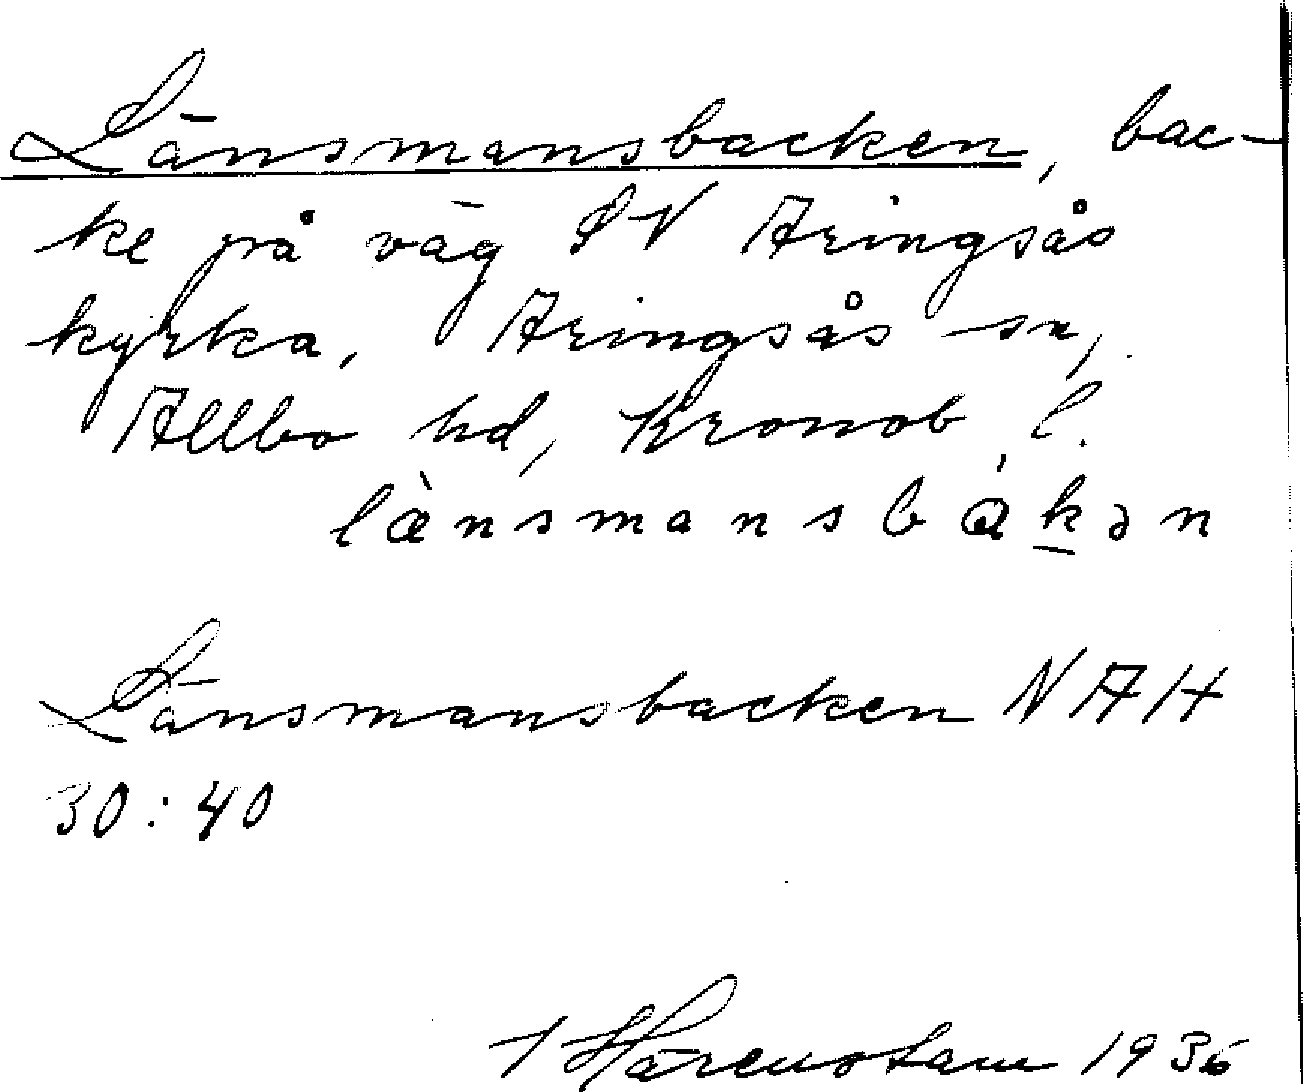 Länsmansbacken, bac-
ke på väg SV Aringsås
kyrka, Aringsås sn,
Allbo hd, Kronob. l.
lǽnsmansbákən
Länsmansbacken NAH
30:40
T Härenstam 1936